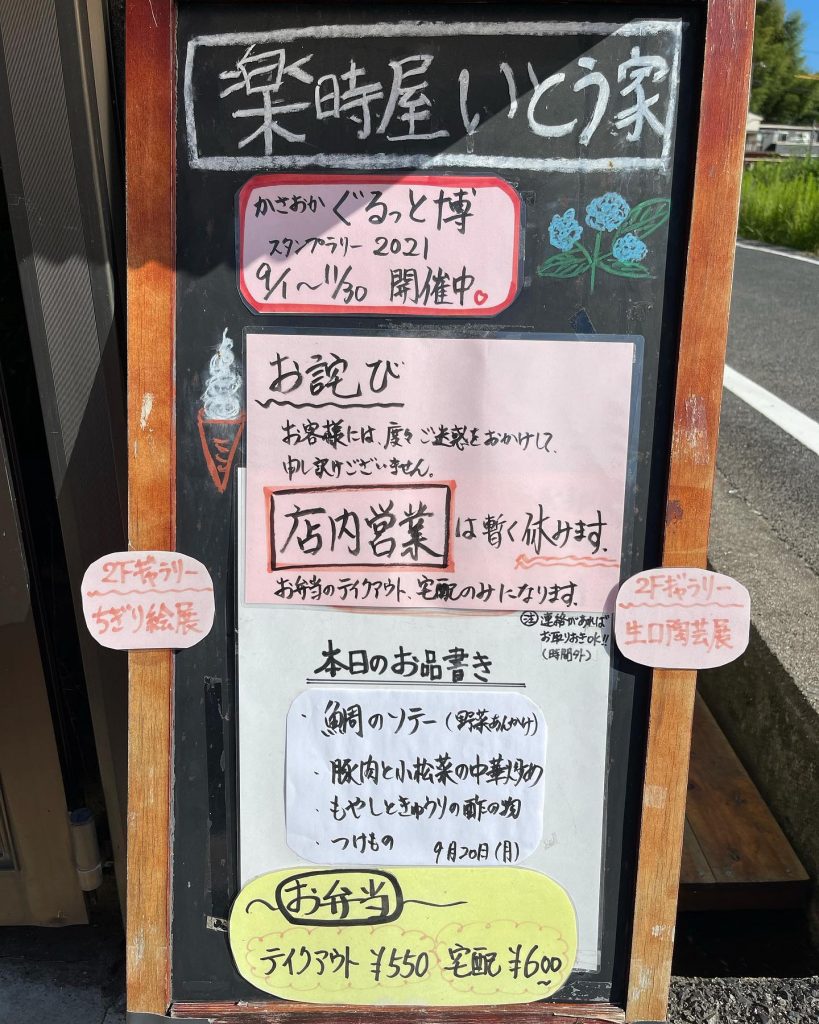 楽時屋いとう家
かさおか ぐるっと博
スタンプラリー 2021
9/1〜11/30 開催中
お詫び
お客様には、度々ご迷惑をおかけして、
申し訳けございません。
店内営業は暫く休みます。
お弁当のテイクアウト、宅配のみになります。
注 連絡があれば
お取りおきOK!!
(時間外)
2Fギャラリー
ちぎり絵展
2Fギャラリー
生口陶芸展
本日のお品書き
・鯛のソテー(野菜あんかけ)
・豚肉と小松菜の中華炒め
・もやしときゅうりの酢の物
・つけもの 9月20日(月)
お弁当
テイクアウト ¥550 宅配 ¥600